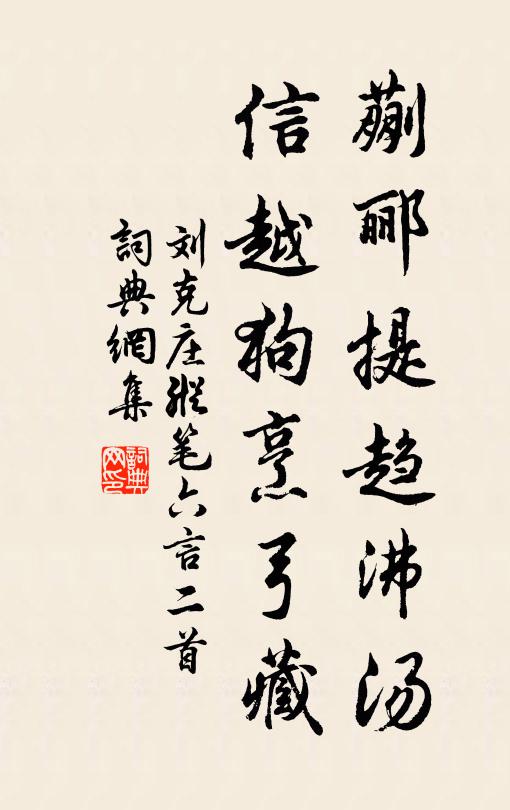 蒯郦提趋沸汤
信越狗烹弓藏
刘克庄纵笔六言二首
詞典網集
詞典網印